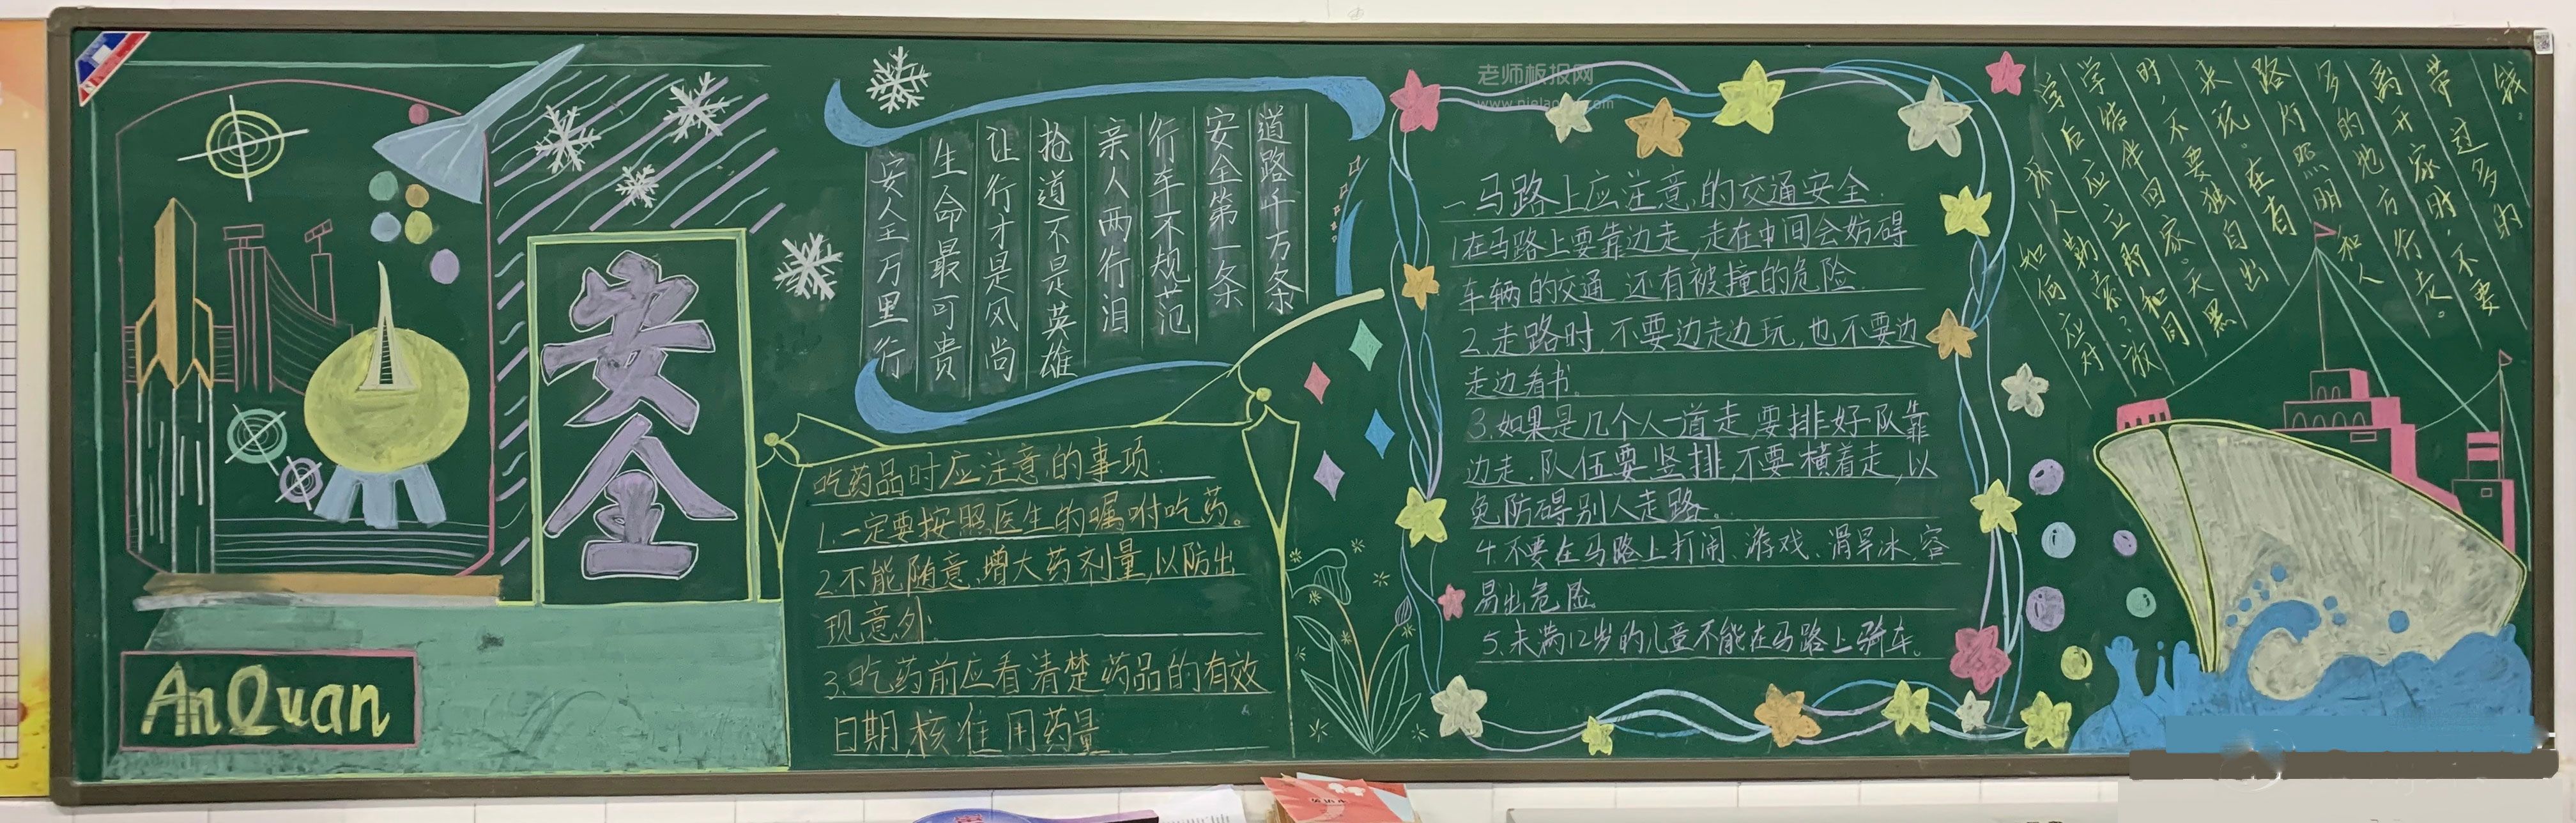 安全
An Quan
道路千万条
安全第一条
行车不规范
亲人两行泪
抢道不是英雄
让行才是风尚
生命最可贵
安全万里行
吃药品时应注意的事项:
1.一定要按照医生的嘱咐吃药。
2.不能随意增大药剂量,以防出
现意外.
3.吃药前应看清楚药品的有效
日期,核准用药量
老师板报网
一.马路上应注意的交通安全.
1在马路上要靠边走,走在中间会妨碍
车辆的交通 还有被撞的危险.
2.走路时,不要边走边玩,也不要边
走边看书.
3.如果是几个人一道走,要排好队靠
边走.队伍要竖排,不要横着走,以
免防碍别人走路。
4.不要在马路上打闹、游戏、滑旱冰,容
易出危险
5.未满12岁的儿童不能在马路上骑车。
如何应对
坏人勒索?放
学后应立即和同
学结伴回家。天黑
时不要独自出
来玩。在有
路灯照明和人
多的地方行走。
离开家时,不要
带过多的
钱